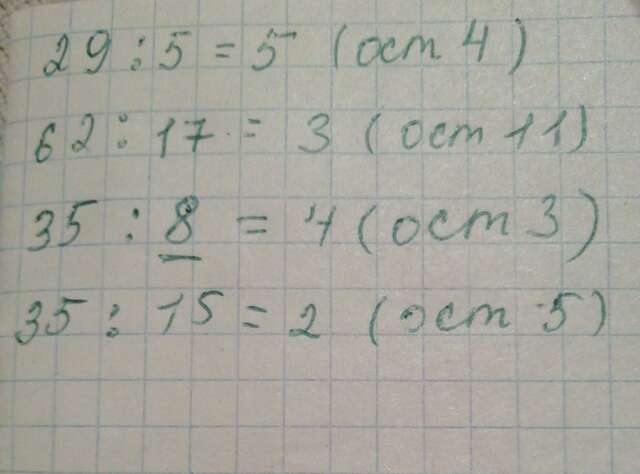 29 : 5 = 5 (ост 4)
62 : 17 = 3 (ост 11)
35 : 8 = 4 (ост 3)
35 : 15 = 2 (ост 5)